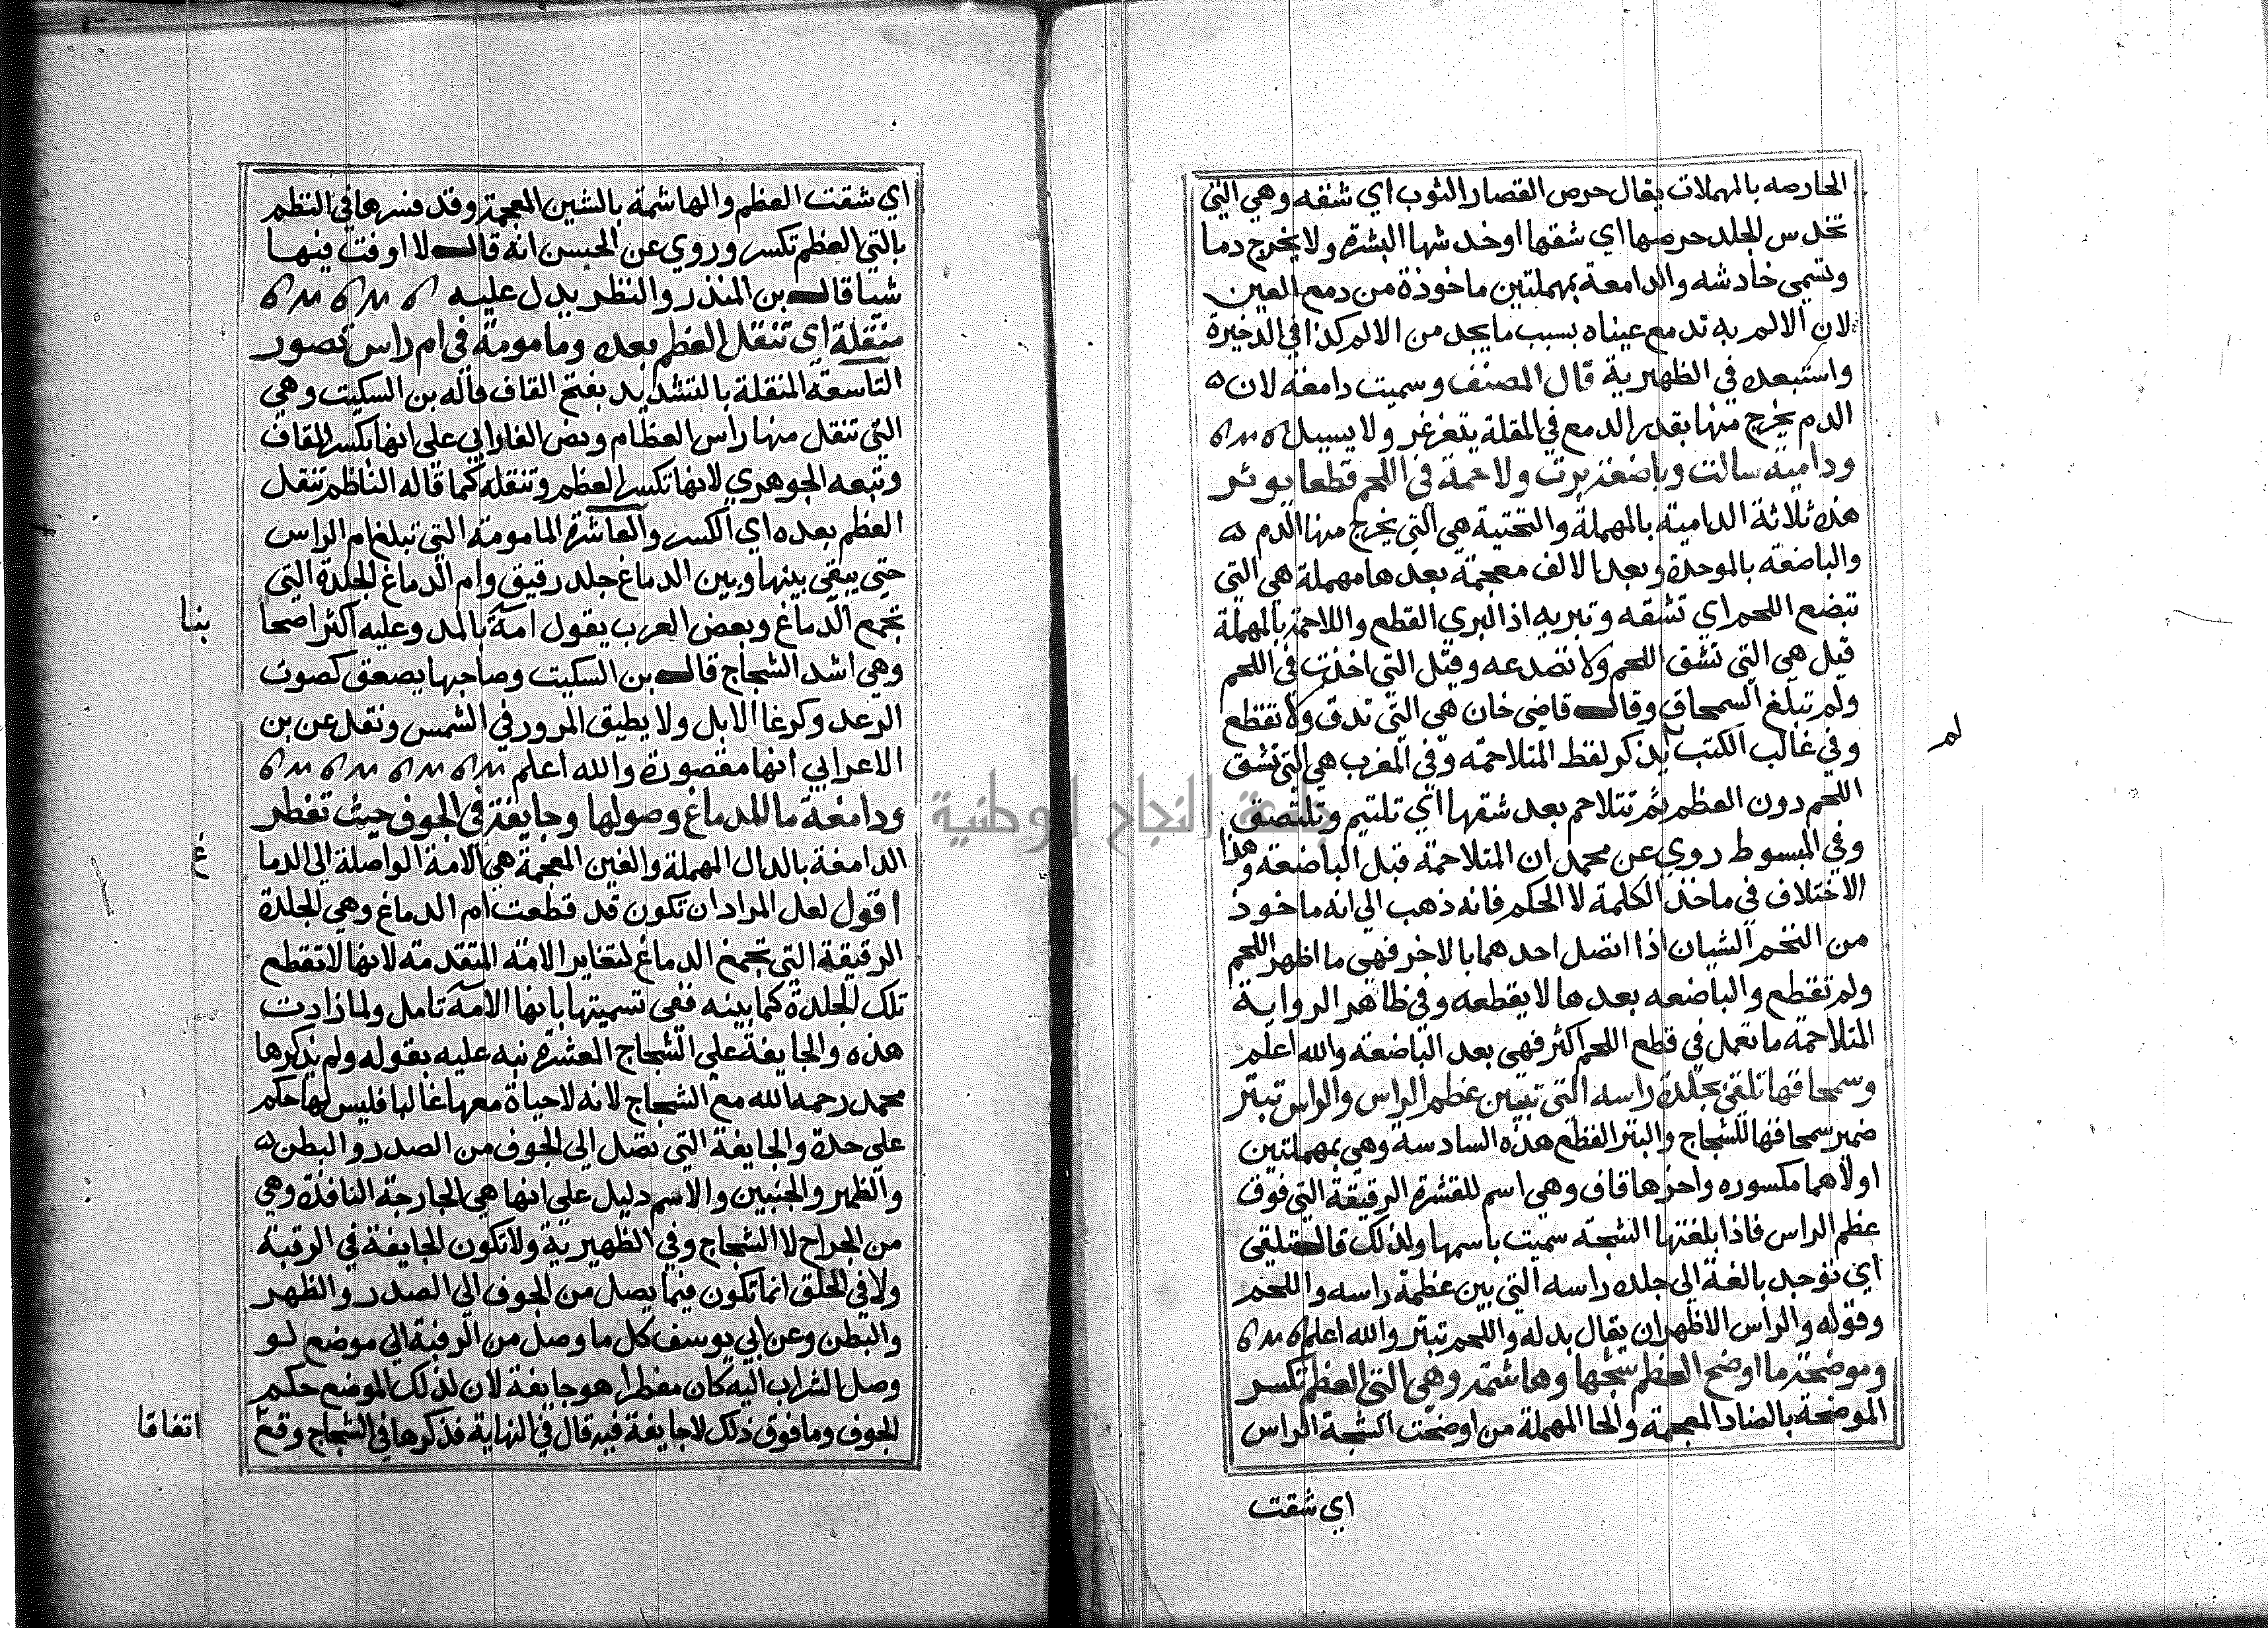 الحارصه بالمهملات يقال حرص القصار الثوب اي شقه وهي التي
تخدس الجلد حرصها اي شقها اوخدشها البشرة ولا يخرج دما
وتسمى خادشه والدامعة بمهملتين ماخوذة من دمع العين
لان الالم به تدمع عيناه بسبب ما يجد من الالم كذا في الذخيرة
واستبعده في الظهيرية قال المصنف وسميت دامعة لان
الدم يخرج منها بقدر الدمع في المقلة يتغرغر ولا يسيل
ودامية سالت وباضعة برت ولاحمة في اللحم قطعا يوثر
هذه ثلاثة الدامية بالمهملة والتحتية هي التي يخرج منها الدم
والباضعة بالموحدة وبعد الالف معجمة بعدها مهملة هي التي
تبضع اللحم اي تشقه وتبريه اذ البري القطع واللاحمة بالمهملة
قيل هي التي تشق اللحم ولا تصدعه وقيل التي اخذت في اللحم
ولم تبلغ السمحاق وقال قاضي خان هي التي تدق ولا تقطع
وفي غالب الكتب يذكر لفظ المتلاحمة وفي المغرب هي التي تشق
لم
اللحم دون العظم ثم تتلاحم بعد شقها اي تلتيم وتلتصق
وفي المبسوط روي عن محمد ان المتلاحمة قبل الباضعة وهذا
الاختلاف في ماخذ الكلمة لا الحكم فانه ذهب الي انه ماخوذ
من التحم الشيان اذا اتصل احدهما بالاخر فهي ما اظهر اللحم
ولم تقطع والباضعه بعدها لا يقطعه وفي ظاهر الرواية
المتلاحمة ما تعمل في قطع اللحم اكثر فهي بعد الباضعة والله اعلم
وسمحاقها تلقى بجلدة راسه التي تبين عظم الراس والراس تبتر
ضمير سمحاقها للشجاج والبتر القطع هذه السادسة وهي بمهملتين
اولاهما مكسوره واخرها قاف وهي اسم للقشرة الرقيقة التي فوق
عظم الراس فاذا بلغتها الشجة سميت باسمها ولذلك قال تلقى
اي توجد بالغة الي جلده راسه التي بين عظمة راسه واللحم
وقوله والراس الاظهر ان يقال بدله واللحم تبتر والله اعلم
وموضحة ما اوضح العظم شجها وهاشمة وهي التي العظم تكسر
الموضحة بالضاد المعجمة والحا المهملة من اوضحت الشجة الراس
اي شقت
اي شقت العظم والهاشمة بالشين المعجمة وقد فسرها في النظم
بالتي العظم تكسر وروي عن الحسن انه قال لا اوقت فيها
شيا قال بن المنذر والنظر يدل عليه
منقلة اي تنقل العظم بعده ومامومة في ام راس تصور
التاسعة المنقلة بالتشديد بفتح القاف قاله بن السكيت وهي
التي تنقل منها راس العظام ونص الفارابي على انها بكسر القاف
وتبعه الجوهري لانها تكسر العظم وتنقله كما قاله الناظم تنقل
العظم بعده اي الكسر والعاشرة المامومة التي تبلغ ام الراس
حتى يبقي بينها وبين الدماغ جلد رقيق وام الدماغ الجلدة التي
تجمع الدماغ وبعض العرب يقول امة بالمد وعليه اكثر اصحا
بنا
وهي اشد الشجاج قال بن السكيت وصاحبها يصعق كصوت
الرعد وكرغا الابل ولا يطيق المرور في الشمس ونقل عن بن
الاعرابي انها مقصورة والله اعلم
ودامغة ما للدماغ وصولها وجايفة في الجوف حيث تفطر
الدامغة بالدال المهملة والغين المعجمة هي الامة الواصلة الي الدما
غ
اقول لعل المراد ان تكون قد قطعت ام الدماغ وهي الجلدة
الرقيقة التي تجمع الدماغ لتغاير الامة المتقدمة لانها لا تقطع
تلك الجلدة كما بينه ففي تسميتها بانها الامة تامل ولما زادت
هذه والجايفة على الشجاج العشرة نبه عليه بقوله ولم يذكرها
محمد رحمه الله مع الشجاج لانه لا حياة معها غالبا فليس لها حكم
على حدة والجايفة التي تصل الي الجوف من الصدر والبطن
والظهر والجنبين والاسم دليل على انها هي الجارحة النافذة وهي
من الجراح لا الشجاج وفي الظهيرية ولا تكون الجايفة في الرقبة
ولا في الحلق انما تكون فيما يصل من الجوف الي الصدر والظهر
والبطن وعن ابي يوسف كل ما وصل من الرقبة الي موضع لو
وصل الشراب اليه كان مفطرا هو جايفة لان لذلك الموضع حكم
الجوف وما فوق ذلك لا جايفة فيه قال في النهاية فذكرها في الشجاج وقع
اتفاقا
جامعة النجاح الوطنية